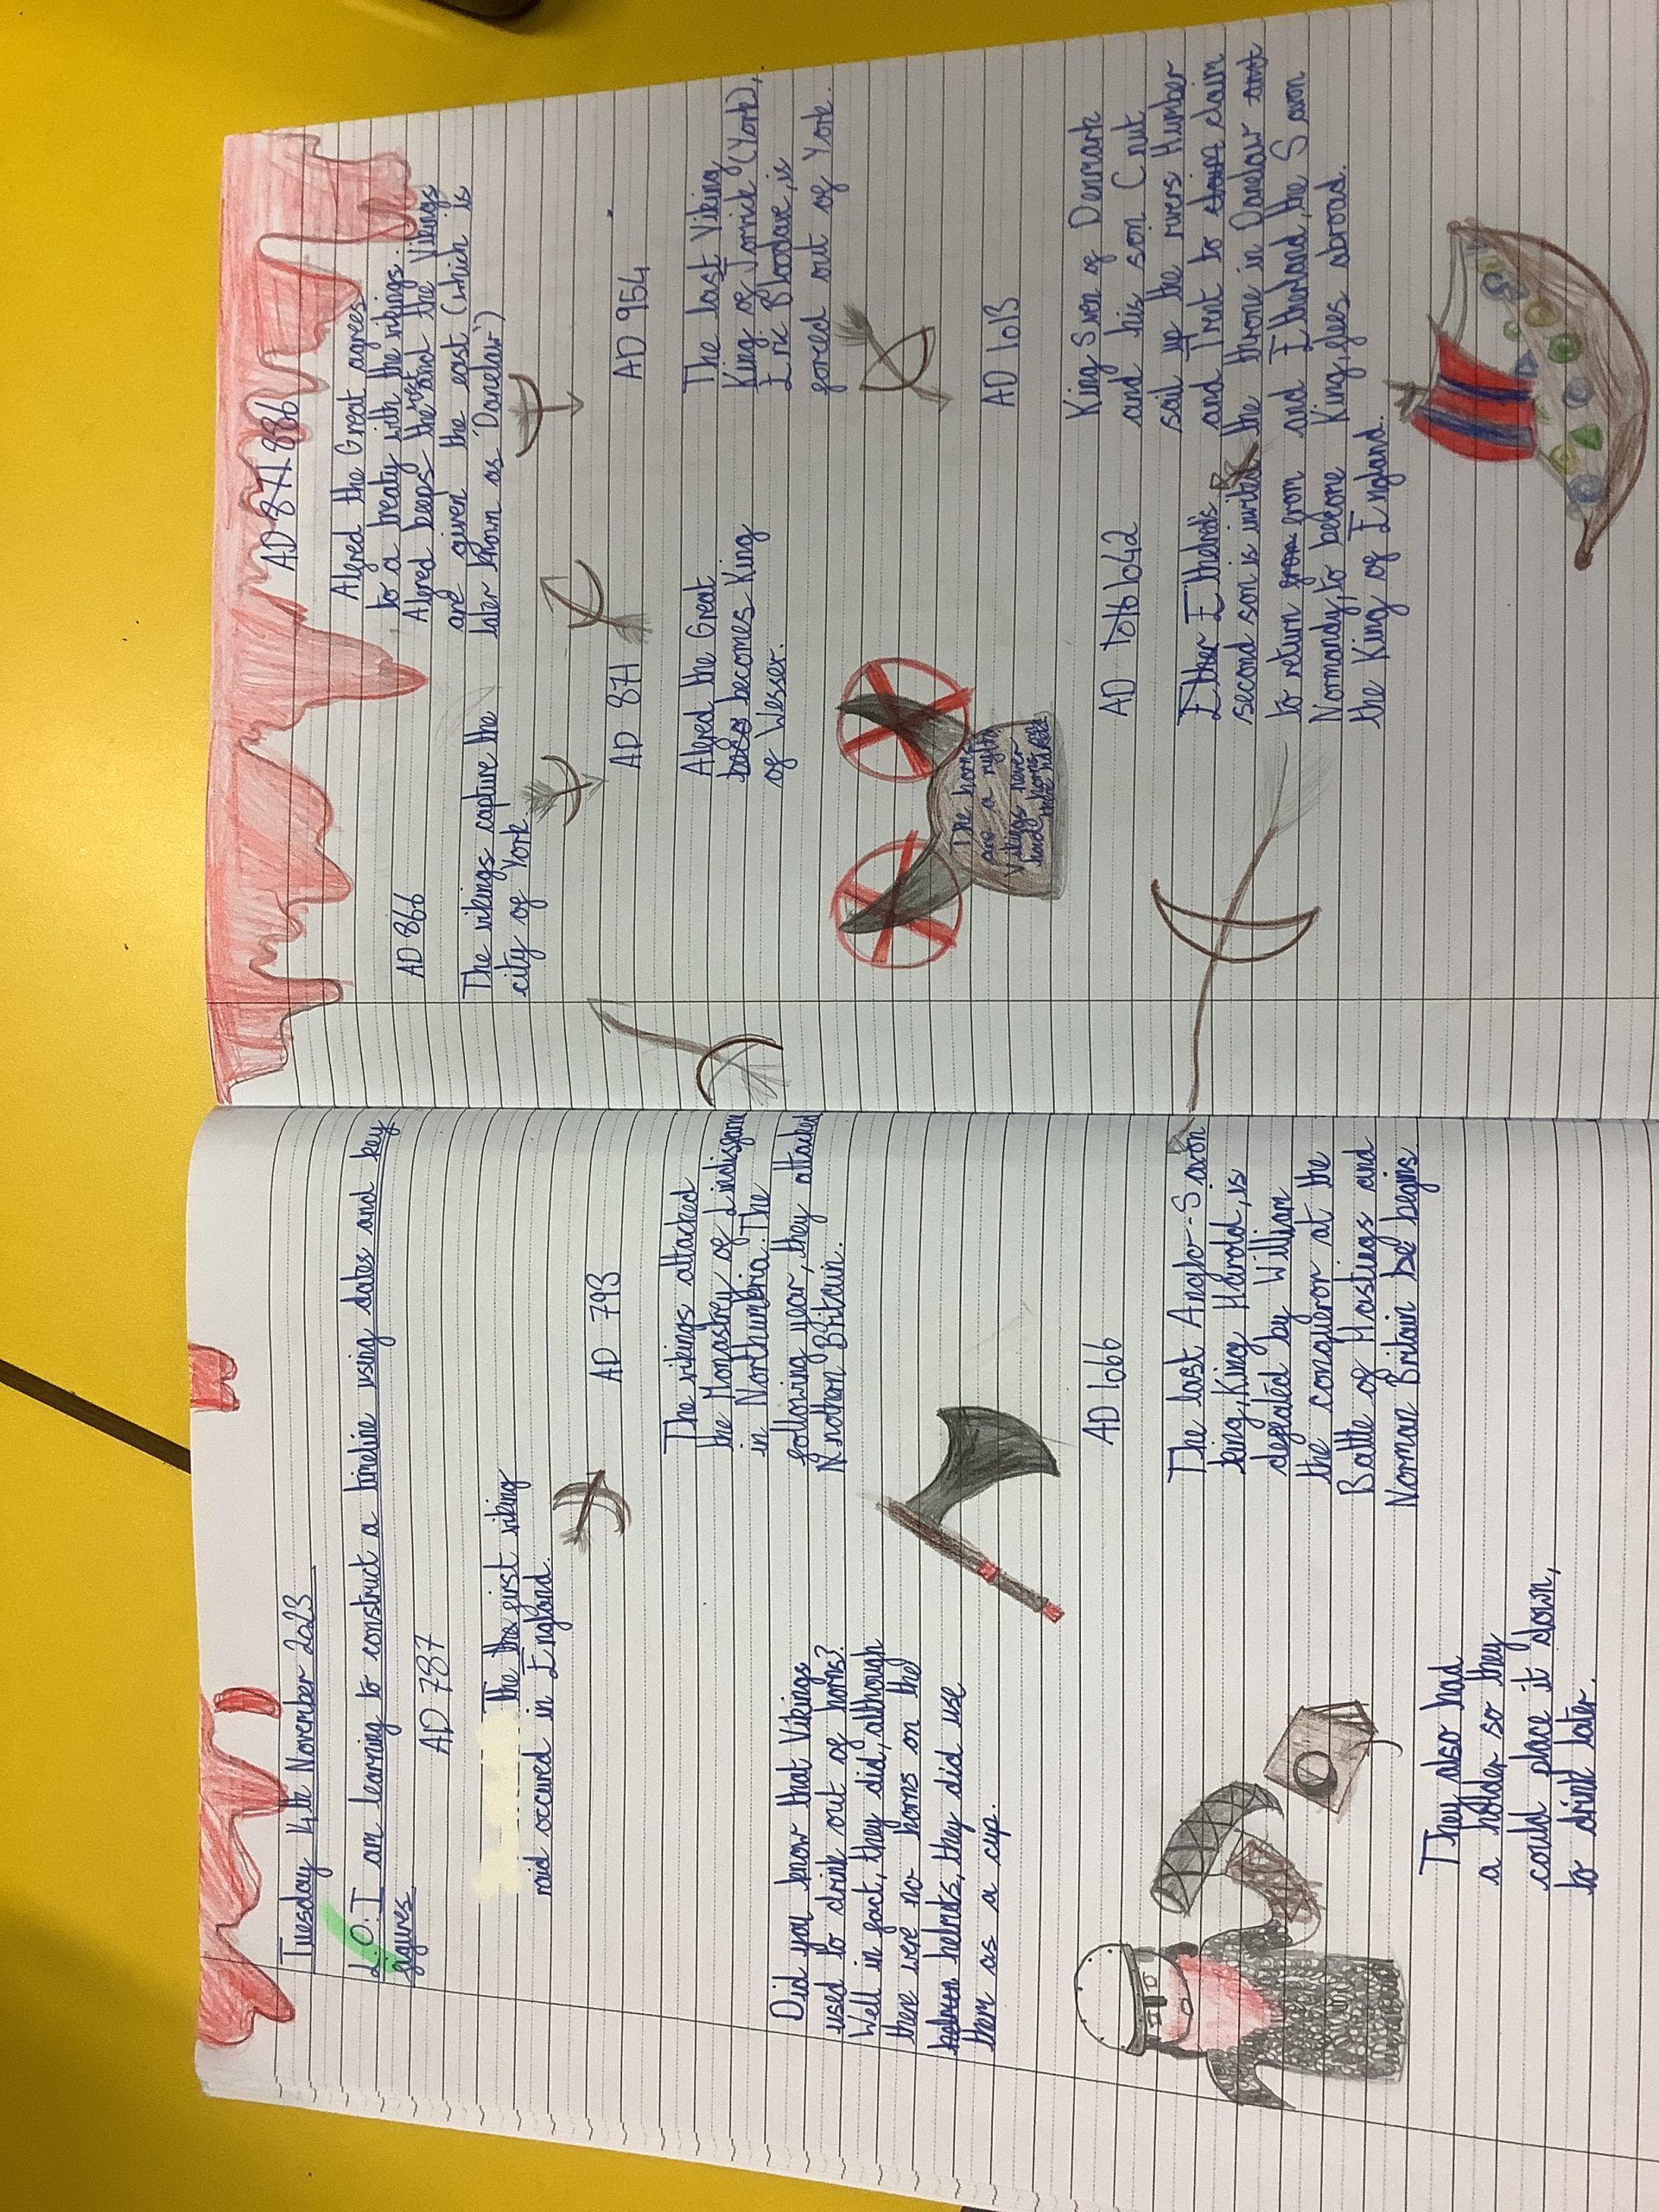 Tuesday 14th November 2023
L.O.I am learning to construct a timeline using dates and key
figures
AD 787
The the first viking
raid occured in England.
AD 793
The vikings attacked
the Monastrey of Lindisfarn
in Northumbria. The
following year, they attacked
Nnothern Britain.
Did you know that Vikings
used to drink out of horns?
Well in fact, they did, although
there were no horns on the
helmets, they did use
them as a cup.
AD 1066
The last Anglo-Saxon
king, King Harold, is
defeated by William
the conqueror at the
Battle of Hastings and
Norman Britain be begins
They also had
a holder so they
could place it down,
to drink later.
AD 866
The vikings capture the
city of York.
AD 871 886
Alfred the Great agrees
to a treaty with the vikings.
Alfred keeps the west and the Vikings
are given the east (which is
later known as 'Danelaw')
AD 871
Alfred the Great
becomes King
of Wesser.
AD 954
The last Viking
King of Jorvick (York),
Eric Bloodaxe, is
forced out of York.
The horns
are a myth
Vikings never
had horns
AD 1013
King Swen of Denmark
and his son Cnut
sail up the rivers Humber
and Trent to claim
the throne in Danelaw
and Etherlaed, the Saxon
King, flees abroad.
AD 1016 1042
Ether Ethelred's
second son is invited
to return from
Normandy, to become
the King of England.